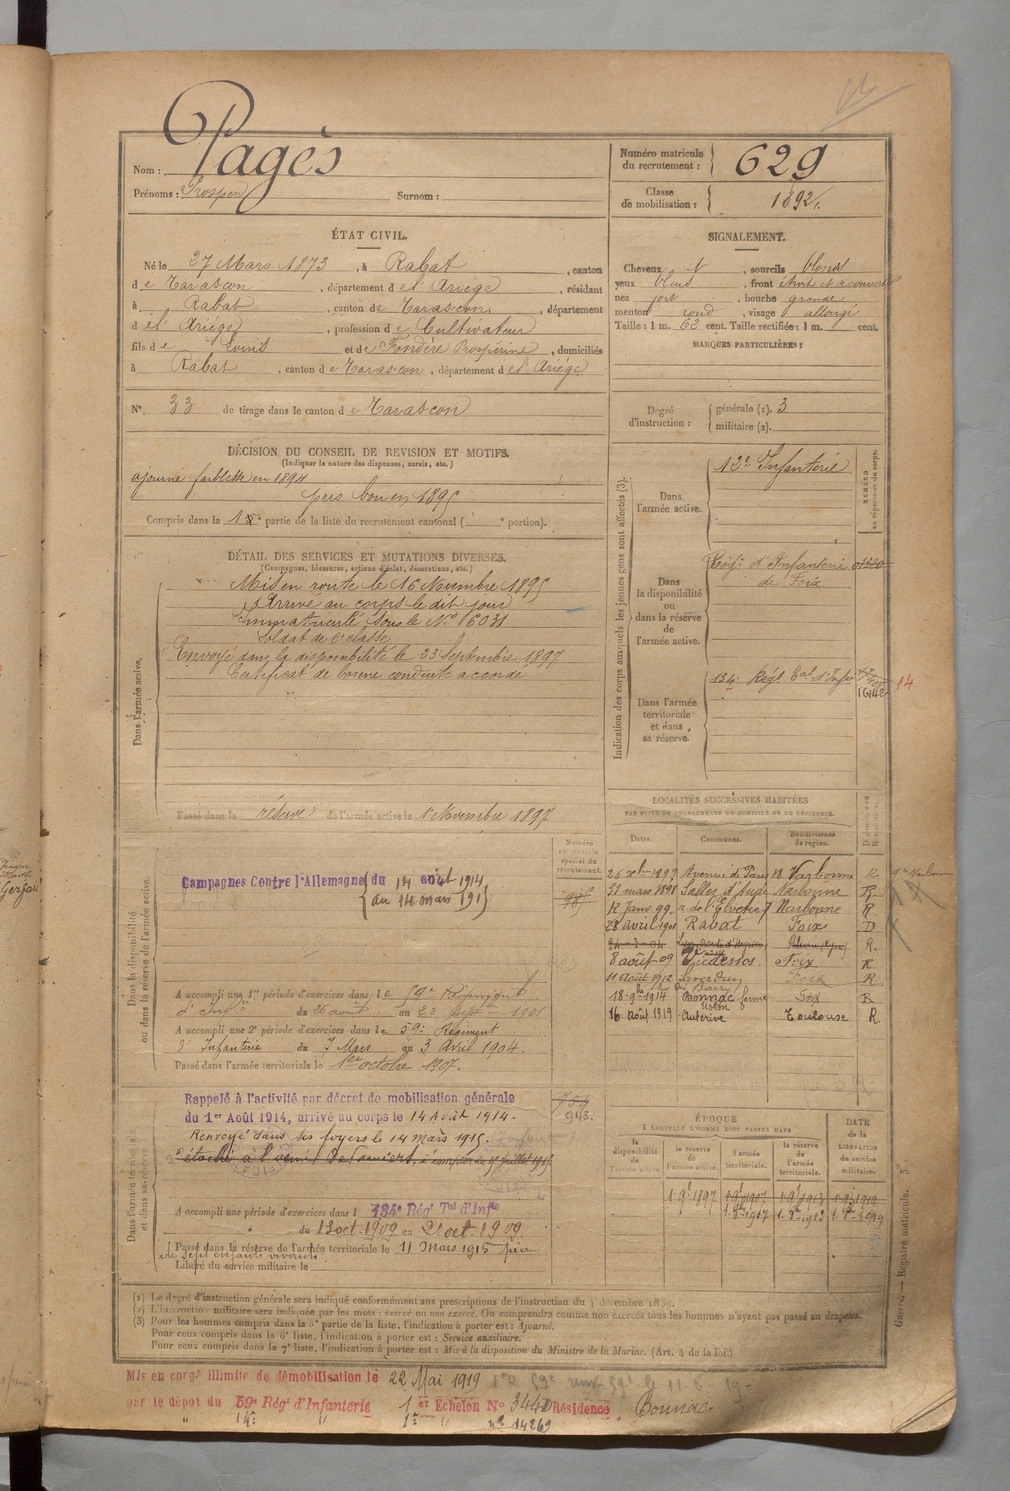 Nom : Pagès
Prénoms : Prosper Surnom :
Numéro matricule du recrutement : 629
Classe de mobilisation : 1892.
ÉTAT CIVIL.
Né le 27 Mars 1873, à Rabat, canton
de Tarascon, département de l'Ariège, résidant
à Rabat, canton de Tarascon, département
d el' Ariège, profession de Cultivateur
fils de Louis et de Fondère Prospérine, domiciliés
à Rabat, canton de Tarascon, département de l'Ariège
N°. 33 de tirage dans le canton de Tarascon
SIGNALEMENT.
Cheveux N, sourcils blonds
yeux bleus, front étroit et découvert
nez fort, bouche grande
menton rond, visage allongé
Taille : 1 m. 62 cent. Taille rectifiée : 1 m. cent.
MARQUES PARTICULIÈRES :
Degré d'instruction : générale (1). 3
militaire (2).
DÉCISION DU CONSEIL DE REVISION ET MOTIFS.
(Indiquer la nature des dispenses, sursis, etc.)
ajourné faiblesse en 1894
pris bon en 1895
Compris dans la 1e partie de la liste du recrutement cantonal ( e portion).
DÉTAIL DES SERVICES ET MUTATIONS DIVERSES.
(Campagnes, blessures, actions d'éclat, décorations, etc.)
Dans l'armée active.
Mis en route le 16 Novembre 1895
Arrivé au corps le dit jour
Immatriculé sous le N° 6031
Soldat de 2e classe
Envoyé dans la disponibilité le 23 Septembre 1897
Certificat de bonne conduite accordé
Passé dans la réserve de l'armée active le 1er Novembre 1897
Indication des corps auxquels les jeunes gens sont affectés (3).
NUMÉRO au répertoire du corps.
Dans l'armée active.
12e Infanterie
Dans la disponibilité ou dans la réserve de l'armée active.
Régt d'Infanterie
de Foix
Dans l'armée territoriale et dans sa réserve.
134e Régt Tal d'Infie
16142
14
LOCALITÉS SUCCESSIVES HABITÉES
PAR SUITE DE CHANGEMENTS DE DOMICILE OU DE RÉSIDENCE.
Dates. Communes. Subdivisions de région.
26 xbre 1897 Avenue de Paris 18 Narbonne R
31 mars 1898 Salles d'Aude Narbonne R
12 Janv. 99. r. de l'Elvetie 7 Narbonne R.
28 avril 1901 Rabat Foix D
24-3-04 R.
8 août 09 Vicdessos. Foix R
11 Août 1912 Saverdun Foix R
18-9bre 1914 Bonnac ferme Foix R
16 août 1919 Auterive Toulouse R.
Dans la disponibilité ou dans la réserve de l'armée active.
Numéro matricule spécial du recrutement.
Campagnes Contre l'Allemagne du 14 août 1914
au 14 mars 1915
A accompli une 1re période d'exercices dans le 59e Régiment
d'Infie du 26 août au 22 Septbre 1901
A accompli une 2e période d'exercices dans le 59e Régiment
d'Infanterie du 7 Mars au 3 Avril 1904.
Passé dans l'armée territoriale le 1er octobre 1907.
Dans l'armée territoriale et dans sa réserve.
Rappelé à l'activité par décret de mobilisation générale
du 1er Août 1914, arrivé au corps le 14 Août 1914.
943.
Renvoyé dans ses foyers le 14 mars 1915.
A accompli une période d'exercices dans l 134e Régt Tal d'Infie
du 13 oct. 1909 au 21 oct. 1909
Passé dans la réserve de l'armée territoriale le 11 Mars 1915 père
de sept enfants vivants
Libéré du service militaire le
ÉPOQUE
À LAQUELLE L'HOMME DOIT PASSER DANS
la disponibilité de l'armée active. la réserve de l'armée active. l'armée territoriale. la réserve de l'armée territoriale. DATE de la LIBÉRATION du service militaire.
1 9bre 1897 1 9bre 1907 1 9bre 1913 1 9bre 1919
1. 8bre 1907 1. 8bre 1913 1. 8bre 1919
(1) Le degré d'instruction générale sera indiqué conformément aux prescriptions de l'instruction du 4 décembre 1889.
(2) L'instruction militaire sera indiquée par les mots : exercé ou non exercé. On comprendra comme non exercés tous les hommes n'ayant pas passé au drapeau.
(3) Pour les hommes compris dans la 5e partie de la liste, l'indication à porter est : Ajourné.
Pour ceux compris dans la 6e liste, l'indication à porter est : Service auxiliaire.
Pour ceux compris dans la 7e liste, l'indication à porter est : Mis à la disposition du Ministre de la Marine. (Art. 4 de la loi.)
Guerre. — Registre matricule. 3.
Mis en congé illimité de démobilisation le 22 Mai 1919
par le dépôt du 59e Régt d'Infanterie 1er Echelon N° 3440 Résidence Bonnac
14e " 1er " n° 14269